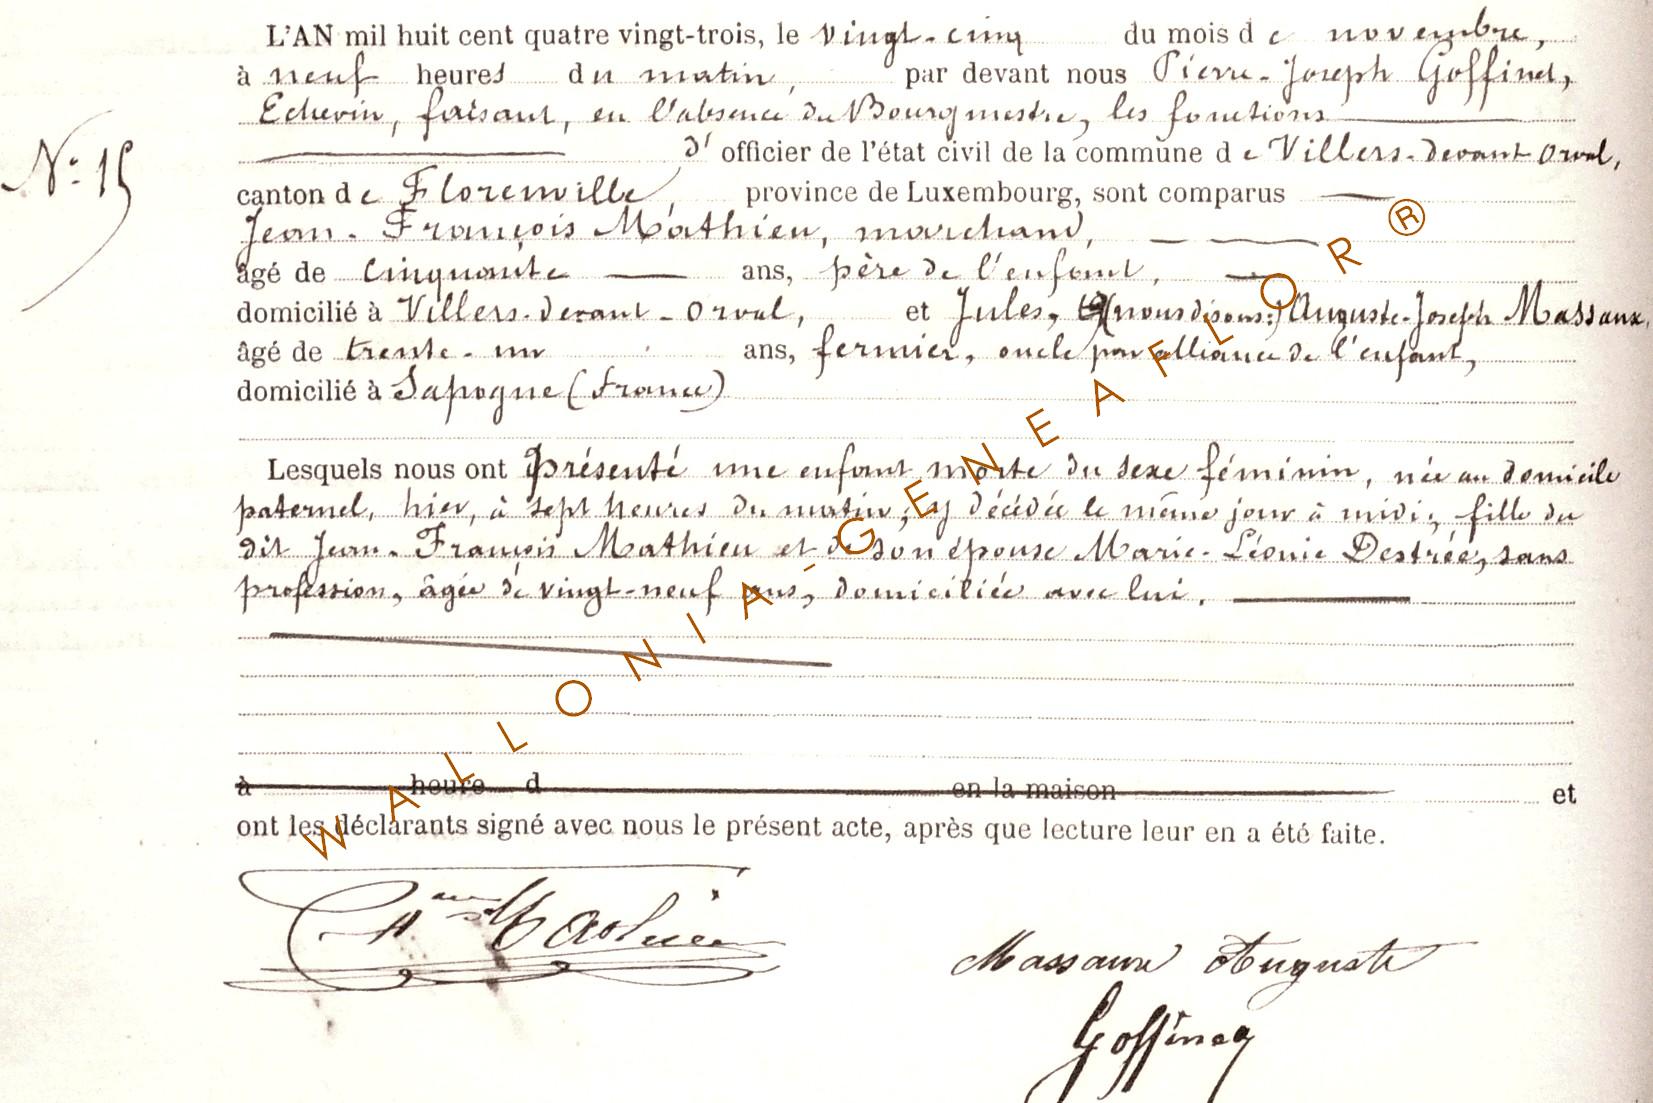 L'AN mil huit cent quatre vingt-trois, le vingt-cinq du mois de novembre,
à neuf heures du matin, par devant nous Pierre-Joseph Goffinet,
Echevin, faisant, en l'absence du Bourgmestre, les fonctions
d' officier de l'état civil de la commune de Villers-devant Orval,
N° 15
canton de Florenville, province de Luxembourg, sont comparus
Jean-François Mathieu, marchand,
âgé de cinquante ans, père de l'enfant,
domicilié à Villers-devant-Orval, et Jules, (nous disons:) Auguste-Joseph Massaux,
âgé de trente-un ans, fermier, oncle par alliance de l'enfant,
domicilié à Sapogne (France)
Lesquels nous ont présenté une enfant morte du sexe féminin, née au domicile
paternel, hier, à sept heures du matin, y décédée le même jour à midi, fille du
dit Jean-François Mathieu et de son épouse Marie-Léonie Destrée, sans
profession, âgée de vingt-neuf ans, domiciliée avec lui.
à heure d en la maison et
ont les déclarants signé avec nous le présent acte, après que lecture leur en a été faite.
Mathieu
Massaux Auguste
Goffinet
WALLONIA-GENEAFLOR®